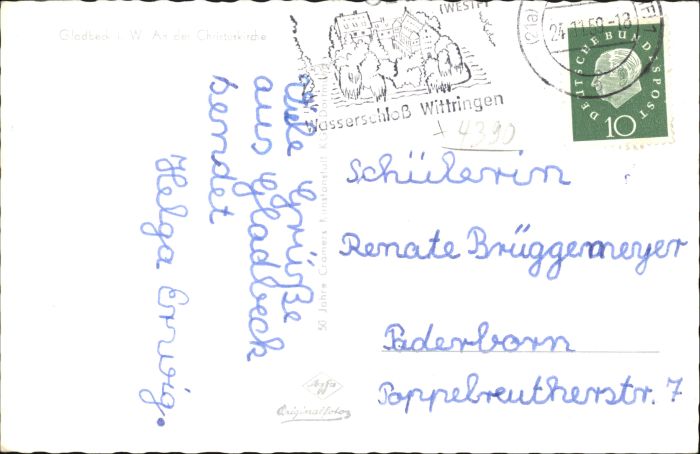 Gladbeck i. W. An der Christuskirche
Viele Grüße
aus Gladbeck
sendet
Helga Erwig.
50 Jahre Cramers Kunstanstalt KG, Dortmund
Agfa
Originalfoto
(WESTF)
Wasserschloß Wittringen
(21a)
24.11.59-18
DEUTSCHE BUNDESPOST
10
+ 4390
Schülerin
Renate Brüggemeyer
Paderborn
Poppelreutherstr. 7